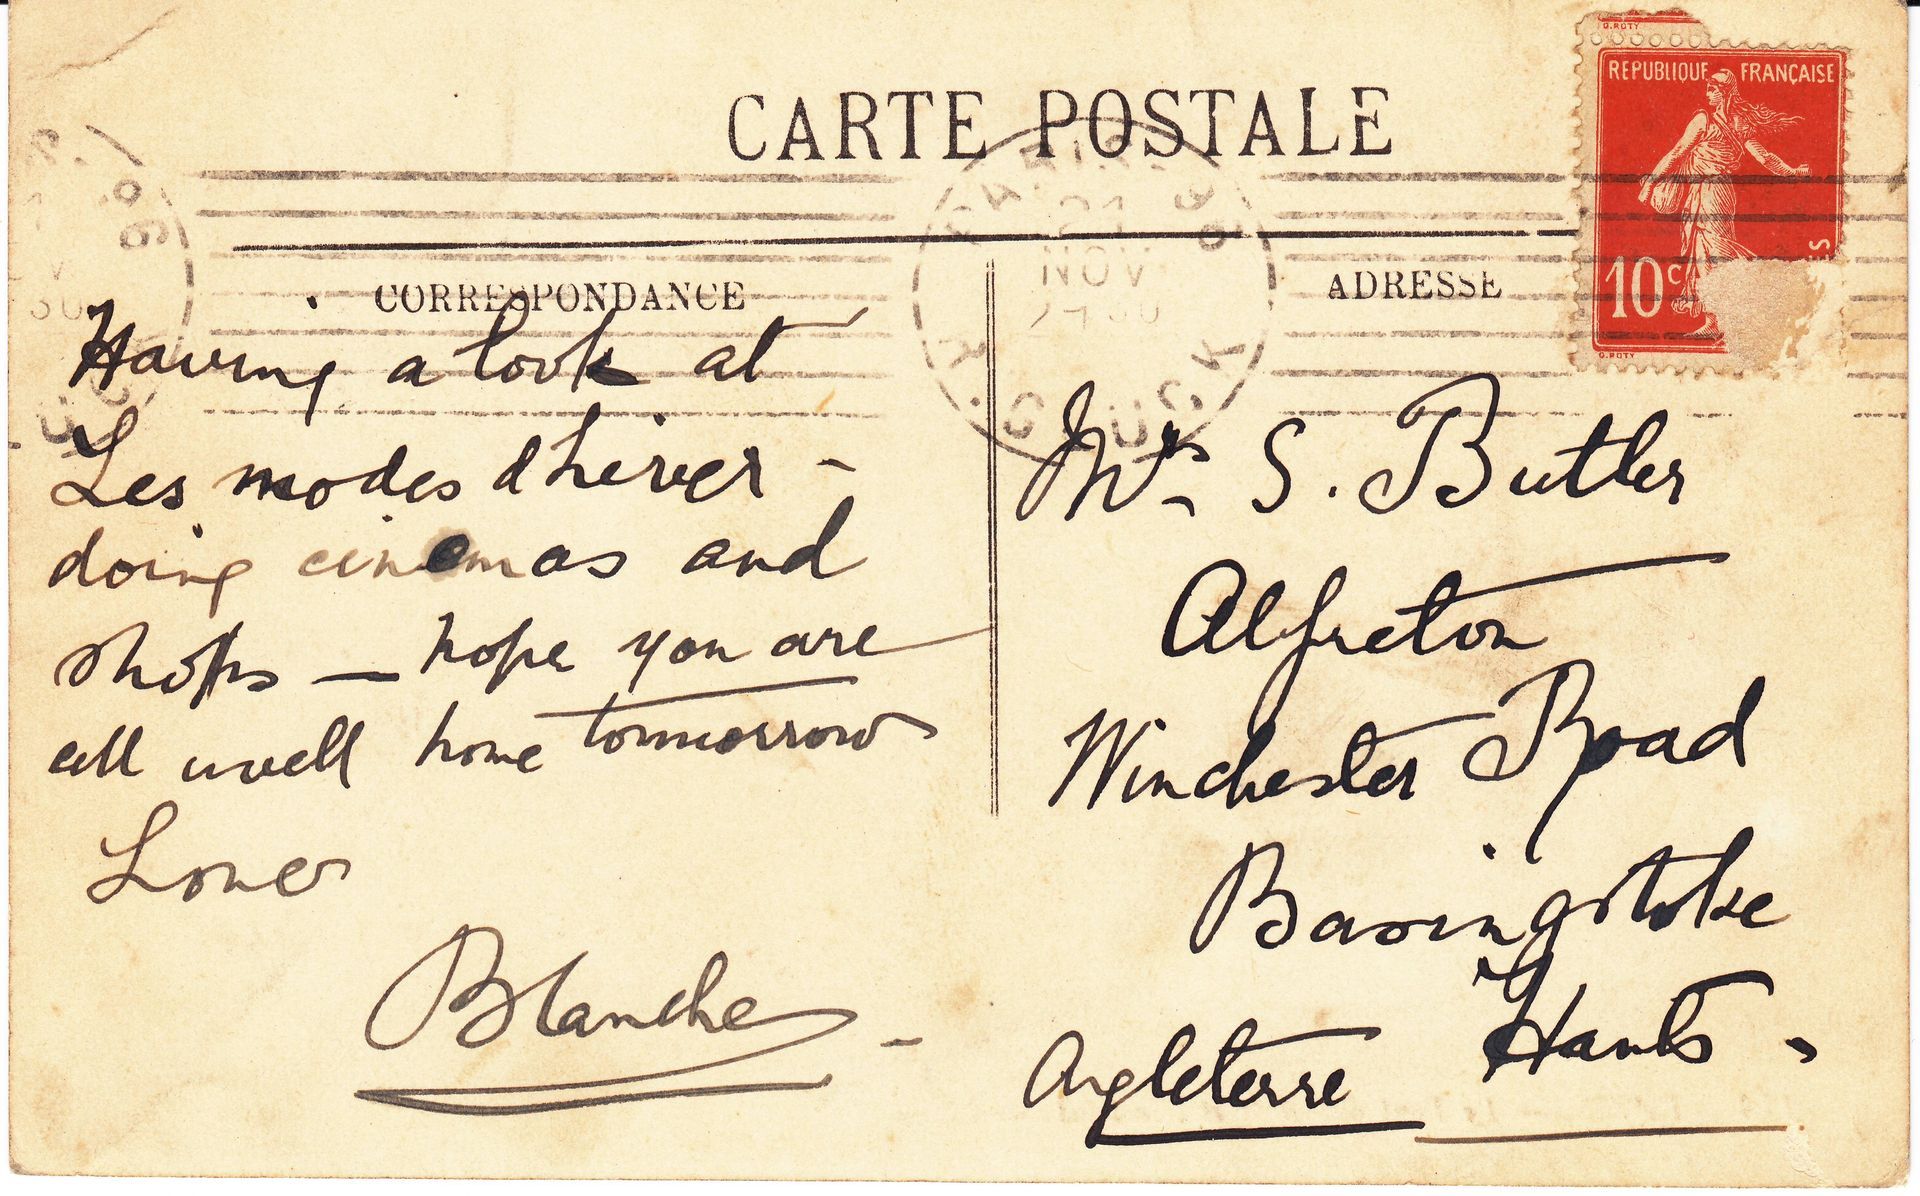 CARTE POSTALE
O. ROTY
REPUBLIQUE FRANÇAISE
10 c
O. ROTY
PARIS
21
NOV
CORRESPONDANCE
ADRESSE
Having a look at
Les modes d'hiver -
doing cinemas and
shops — hope you are
all well home tomorrow
Love
Blanche -
Mrs S. Butler
Alfreton
Winchester Road
Basingstoke
Hants -
Angleterre